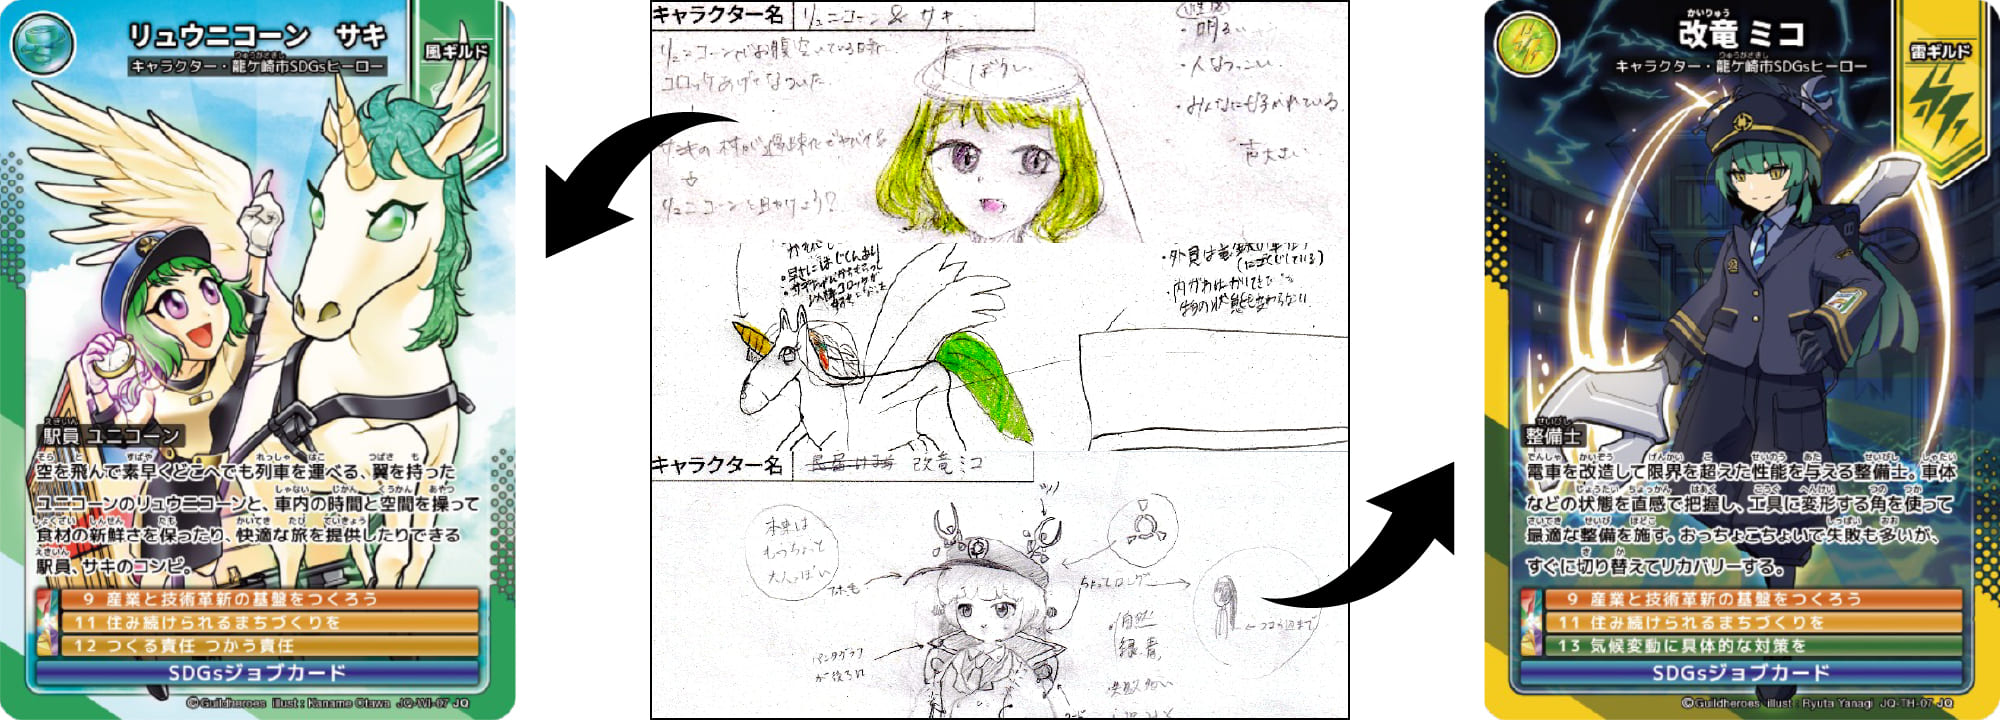 リュウニコーン　サキ
りゅうがさきし
キャラクター・龍ケ崎市SDGsヒーロー
風ギルド
えきいん
駅員 ユニコーン
そら と すばや れっしゃ はこ つばさ も
空を飛んで素早くどこへでも列車を運べる、翼を持った
しゃない じかん くうかん あやつ
ユニコーンのリュウニコーンと、車内の時間と空間を操って
しょくざい しんせん たも かいてき たび ていきょう
食材の新鮮さを保ったり、快適な旅を提供したりできる
えきいん
駅員、サキのコンビ。
9 産業と技術革新の基盤をつくろう
11 住み続けられるまちづくりを
12 つくる責任 つかう責任
SDGsジョブカード
©Guildheroes illust : Kaname Otawa JQ-WI-07 JQ
キャラクター名 リュニコーン & サキ
リュニコーンがお腹空いている時に
コロッケあげてなついた
サキの村が過疎化でヤバイ
ぼうし
・明るい
・人なつっこい
・みんなに好かれている
声大きい
キャラクター名 改竜ミコ
本来は
もうちょっと
大人っぽい
ツノ
ちょっとロング
パンタグラフ
が後ろに
自然
緑、青
失敗多い
かいりゅう
改竜 ミコ
りゅうがさきし
キャラクター・龍ケ崎市SDGsヒーロー
雷ギルド
せいびし
整備士
でんしゃ かいぞう げんかい こ せいのう あた せいびし しゃたい
電車を改造して限界を超えた性能を与える整備士。車体
じょうたい ちょっかん はあく こうぐ へんけい つの つか
などの状態を直感で把握し、工具に変形する角を使って
さいてき せいび ほどこ しっぱい おお
最適な整備を施す。おっちょこちょいで失敗も多いが、
き か
すぐに切り替えてリカバリーする。
9 産業と技術革新の基盤をつくろう
11 住み続けられるまちづくりを
13 気候変動に具体的な対策を
SDGsジョブカード
©Guildheroes illust : Ryuta Yanagi JQ-TH-07 JQ